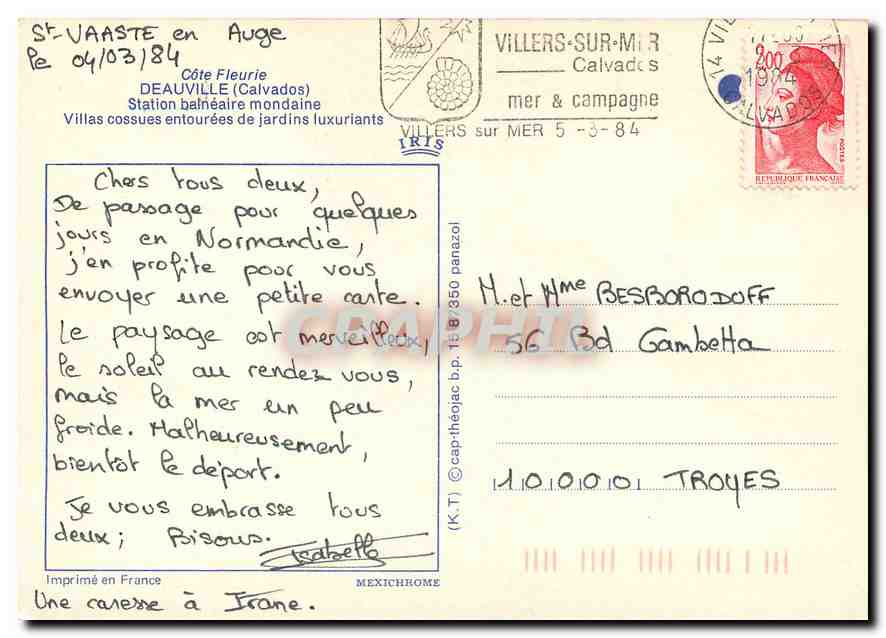 St-VAASTE en Auge
le 04/03/84
Côte Fleurie
DEAUVILLE (Calvados)
Station balnéaire mondaine
Villas cossues entourées de jardins luxuriants
IRIS
Chers tous deux,
De passage pour quelques
jours en Normandie,
j'en profite pour vous
envoyer une petite carte.
Le paysage est merveilleux,
le soleil au rendez vous,
mais la mer un peu
froide. Malheureusement,
bientôt le départ.
Je vous embrasse tous
deux; Bisous.
Isabelle
Imprimé en France
MEXICHROME
Une caresse à Irane.
(K.T) © cap-théojac b.p. 15 87350 panazol
VILLERS-SUR-MER
Calvados
mer & campagne
VILLERS sur MER 5 -3-84
14 VIL
1984
CALVADOS
2,00
POSTES
REPUBLIQUE FRANÇAISE
M. et Mme BESBORODOFF
56 Bd Gambetta
10000 TROYES
CPAPHIL